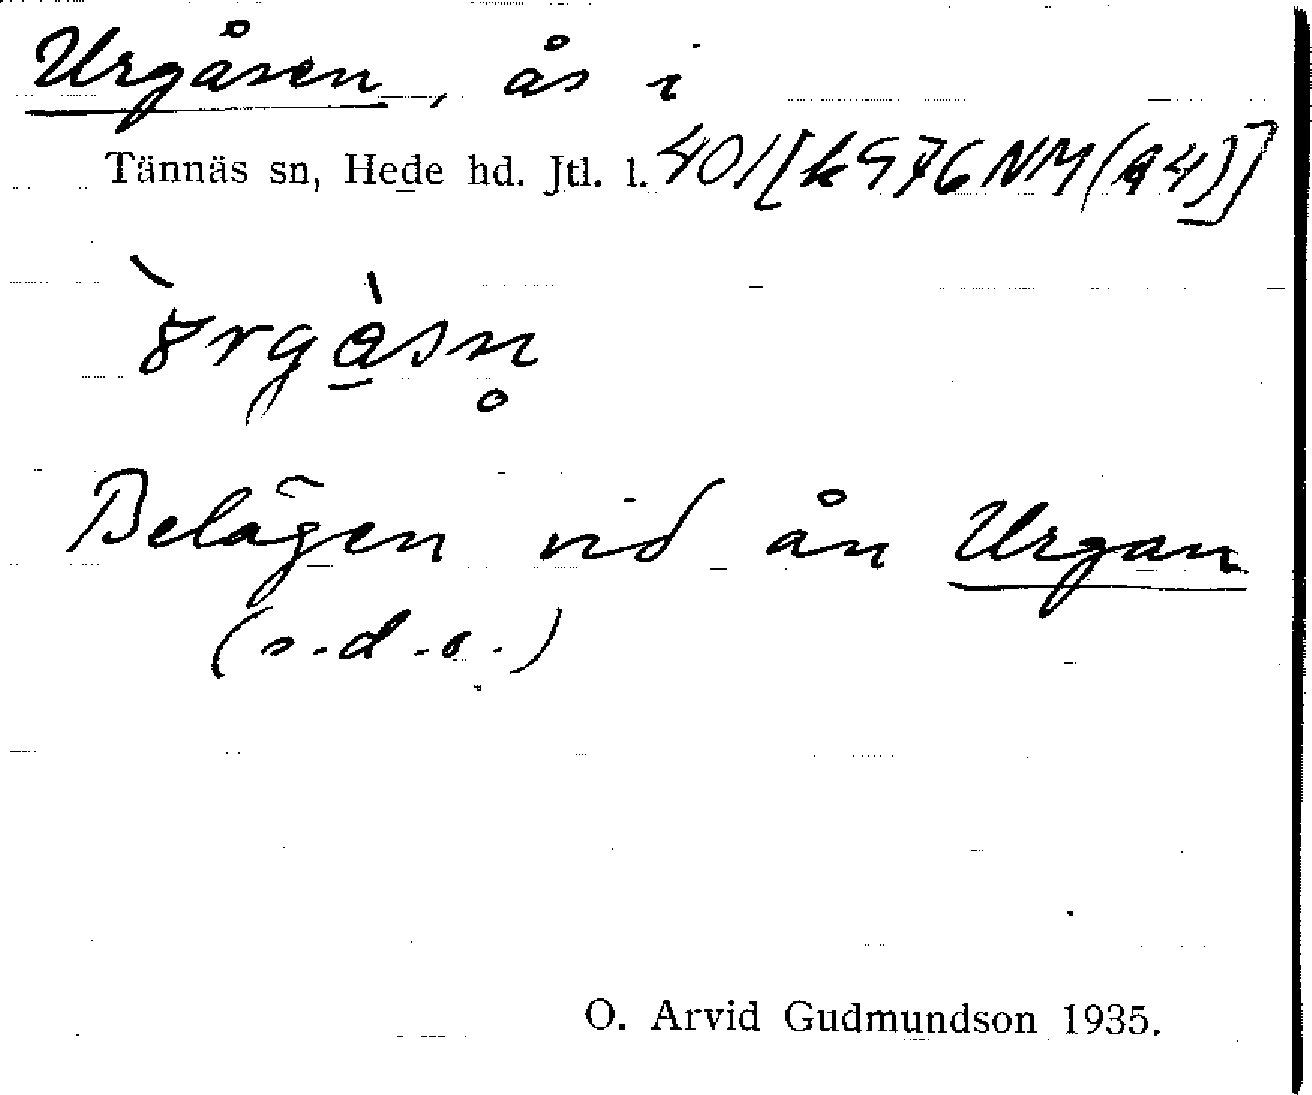 Urgåsen, ås i
Tännäs sn, Hede hd. Jtl. l. 401[k976NM(a4)]
Belägen vid ån Urgan
(s.d.o.)
O. Arvid Gudmundson 1935.